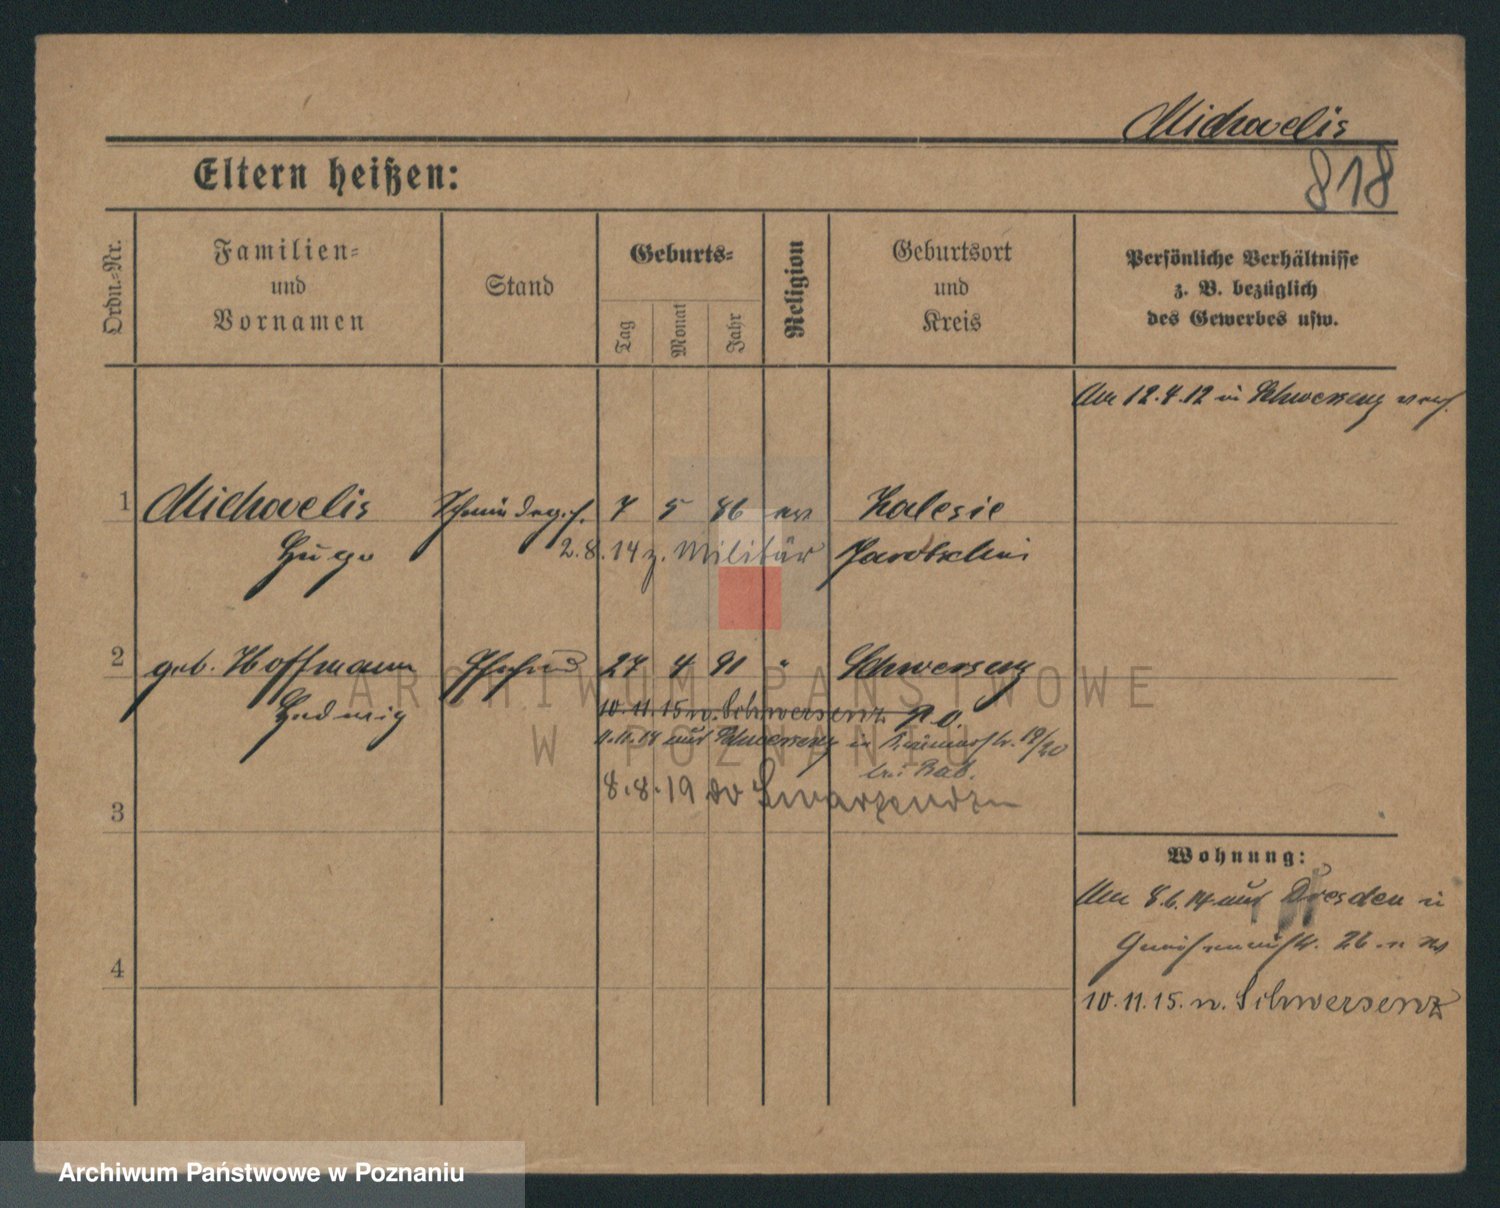 Michaelis
818
Eltern heißen:
Ordn.-Nr.
Familien-
und
Vornamen
Stand
Geburts-
Tag
Monat
Jahr
Religion
Geburtsort
und
Kreis
Persönliche Verhältnisse
z. B. bezüglich
des Gewerbes usw.
Am 12.4.12 in Schwersenz verh.
1 Michaelis 7 5 86 ev Zalesie
Hugo 2.8.14 z. Militär Jarotschin
2 geb. Hoffmann Ehefrau 27 4 91 " Schwersenz
Hedwig 10.11.15 n. Schwersenz
aus Schwersenz in 19/20
bei
3 8.8.19
4
Wohnung:
Am 8.6.14 aus Dresden in
26
10.11.15. n. Schwersenz
ARCHIWUM PAŃSTWOWE
W POZNANIU
Archiwum Państwowe w Poznaniu